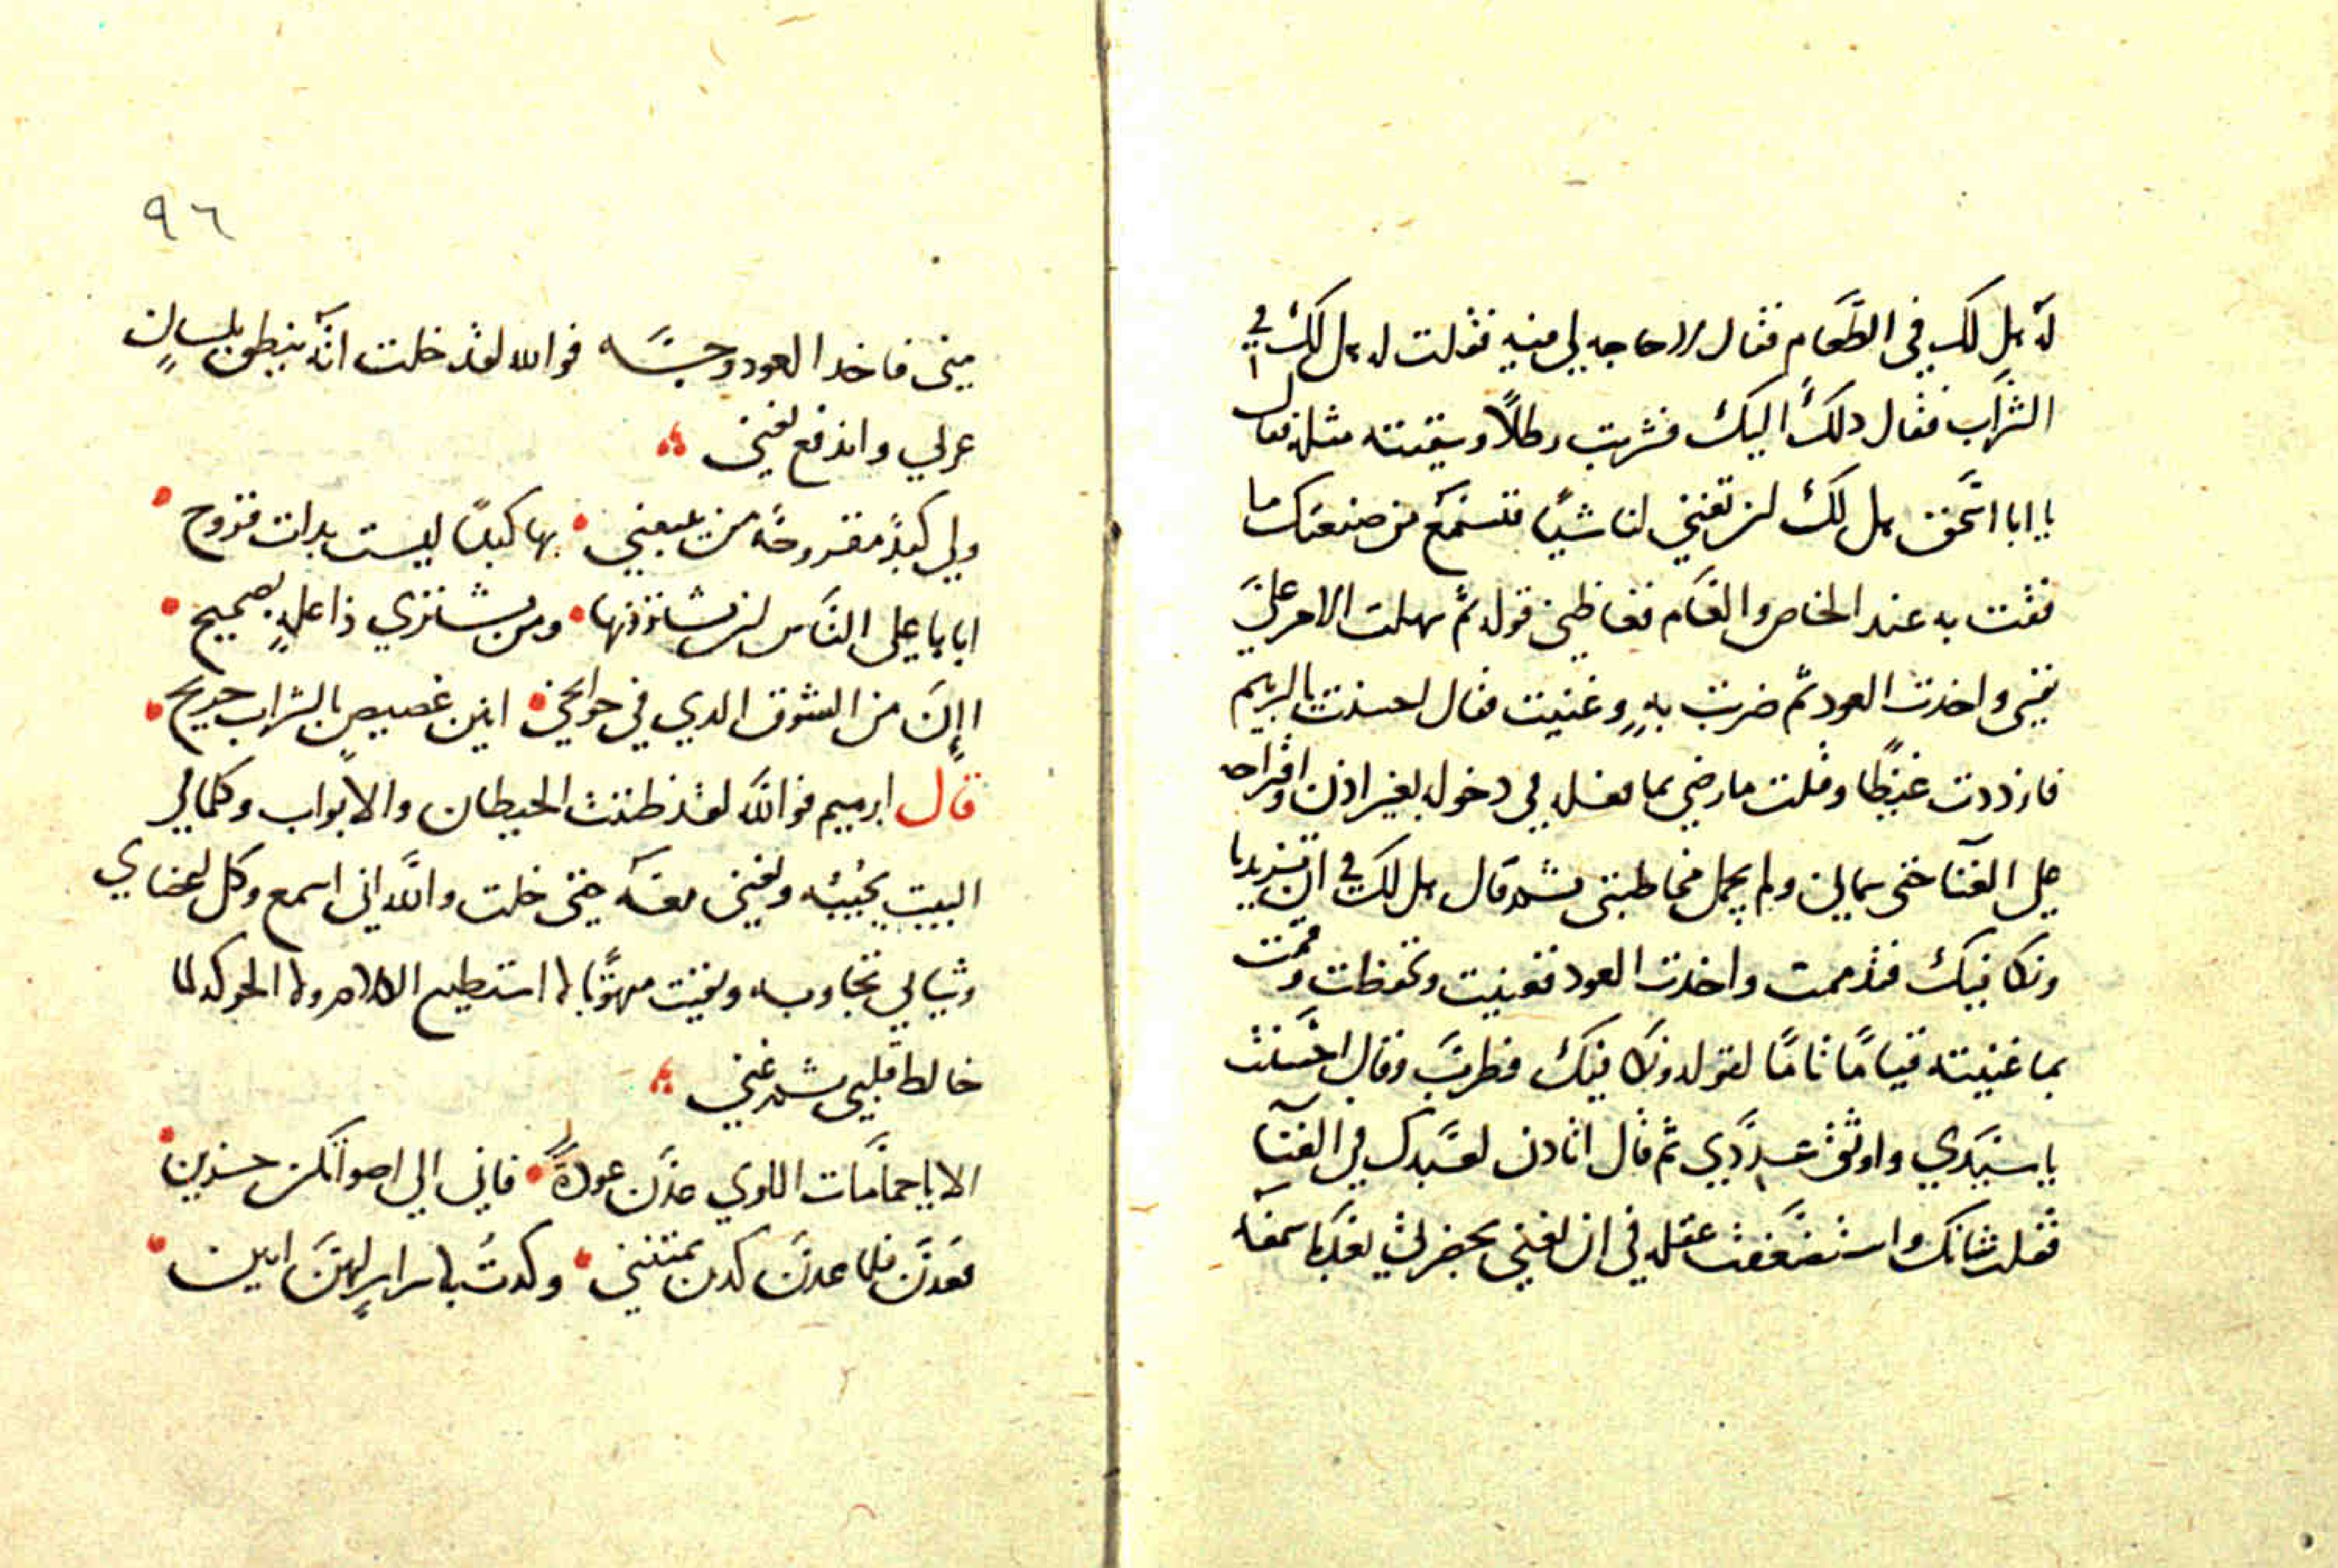 له هل لك في الطعام فقال لا حاجه لي فيه فقلت له هل لك في
الشراب فقال دلك اليك فشربت رطلاً وسقيته مثله فقال
يا ابا اسحق هل لك ان تغني لنا شياً فنسمع من صنعتك ما
فقت به عند الخاص والعام فغاظني قوله ثم سهلت الامر على
نفسي واخدت العود ثم ضربت به وغنيت فقال احسنت يا ابرهيم
فازددت غيظاً وقلت ما رضي بما فعله في دخوله بغير اذن واقتراحه
على الغنا حتى سماني ولم يجمل مخاطبتي ثم قال هل لك في ان تزيدنا
ونكافيك فتذممت واخدت العود فغنيت وتحفظت وقمت
بما غنيته قياماً تاماً لقوله ونكافيك فطرب وقال احسنت
يا سيدي واوثق عددي ثم قال اتادن لعبدك في الغنا
فقلت شانك واستضعفت عقله في ان يغني بحضرتي بعد ما سمعه
٩٦
مني فاخد العود وجسّه فوالله لقد خلت انّه ينطق بلسانٍ
عربي واندفع يغني
ولي كبدٌ مقروحةٌ من يبيعني بها كبداً ليست بدات قروح
اباها على الناس لن يشترونها ومن يشتري ذا علةٍ بصحيح
اإنَّ من الشوق الدي في جوانحي انين غصيصٍ بالشراب جريح
قال ابرهيم فوالله لقد ظننت الحيطان والابواب وكلما في
البيت يجيبه ويغني معه حتى خلت والله اني اسمع وكل اعضاي
وثيابي تجاوبه وبقيت مبهوتاً لا استطيع الكلام ولا الحركه لما
خالط قلبي ثم غنى
الا يا حمامات اللوي عدن عودةً فاني الى اصواتكن حزين
فعدنَ فلما عدنَ كدن يمتنني وكدتُ باسرارٍ لهنَّ ابين